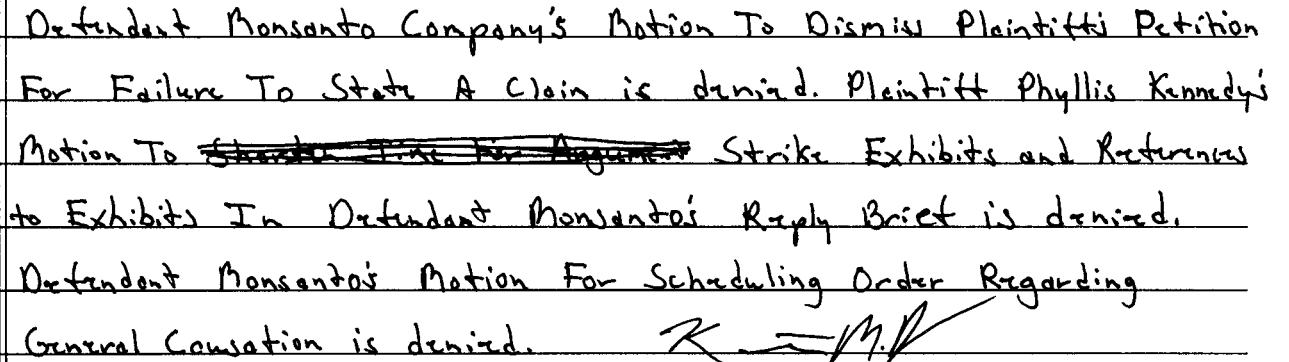 Defendant Monsanto Company's Motion To Dismiss Plaintiff's Petition
For Failure To State A Claim is denied. Plaintiff Phyllis Kennedy's
Motion To Shorten Time For Argument Strike Exhibits and References
to Exhibits In Defendant Monsanto's Reply Brief is denied.
Defendant Monsanto's Motion For Scheduling Order Regarding
General Causation is denied.